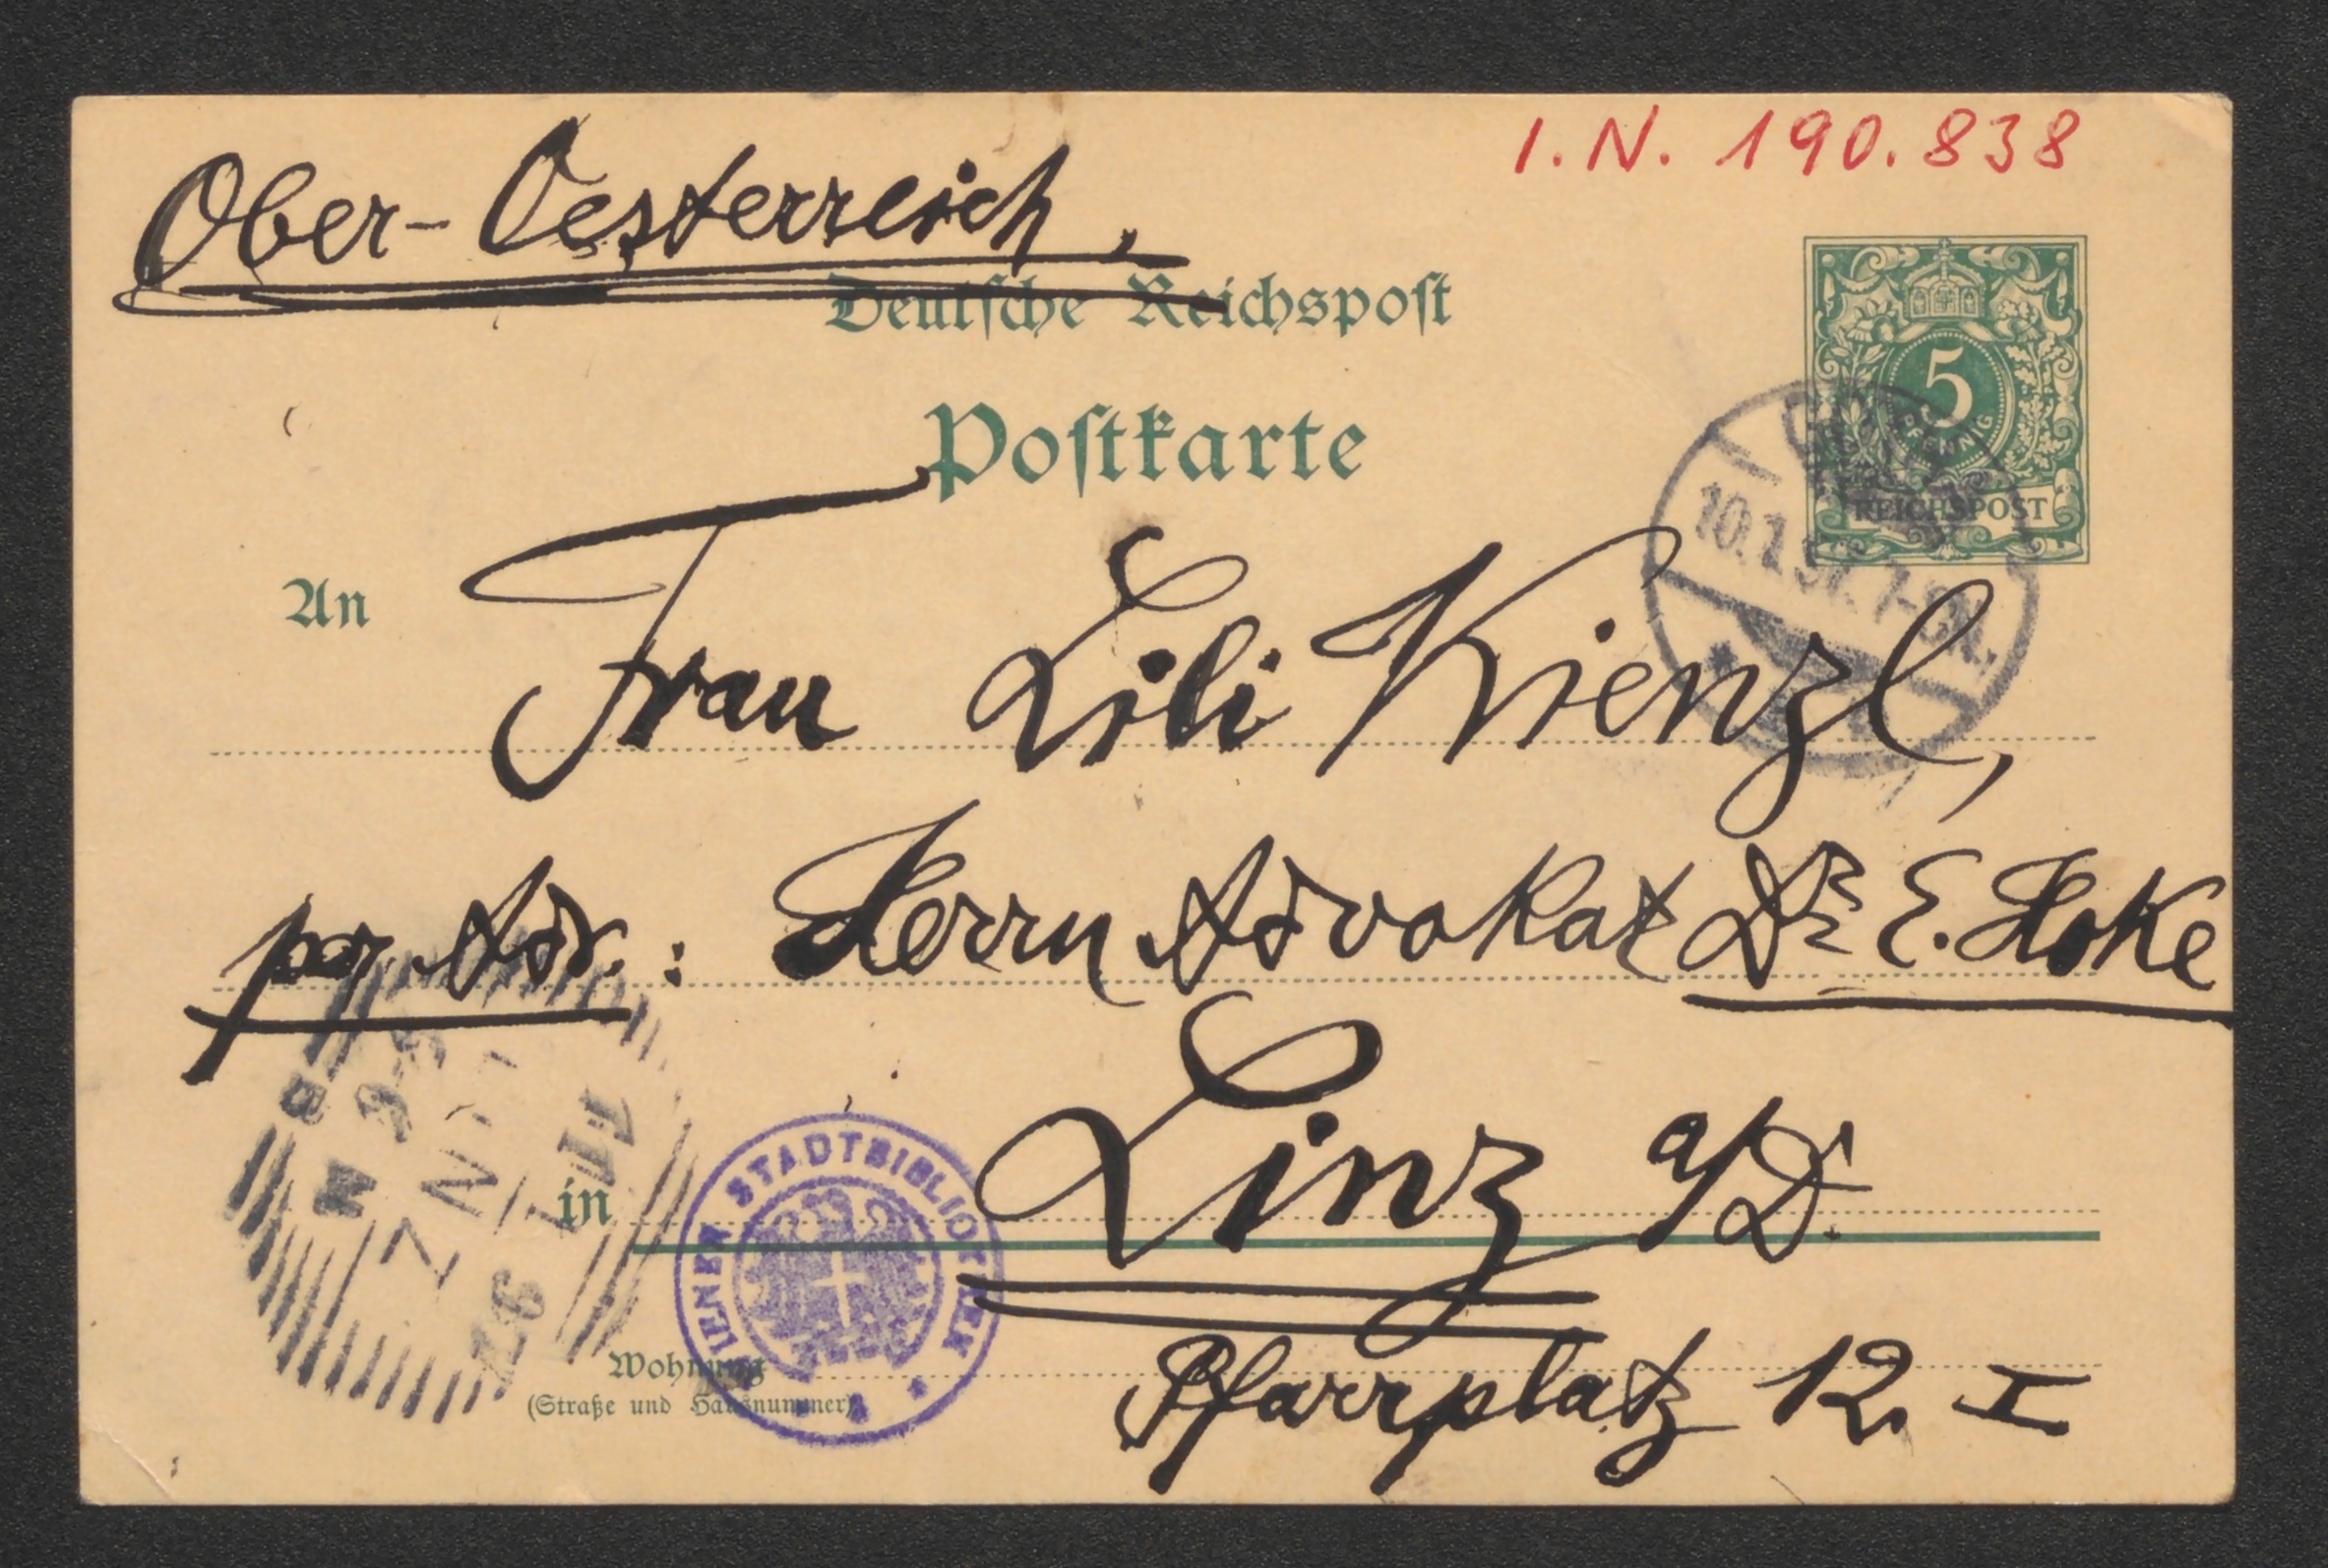 I. N. 190.838
Ober-Oesterreich,
Deutsche Reichspost
5
PFENNIG
REICHSPOST
Postkarte
10.1.97. 7-8N.
An Frau Lili Kienzl,
per Adr.: Herrn Advokat Dr E. Hoke
in Linz a/D.
LINZ
WIENER STADTBIBLIOTHEK
Wohnung Pfarrplatz 12 I
(Straße und Hausnummer)